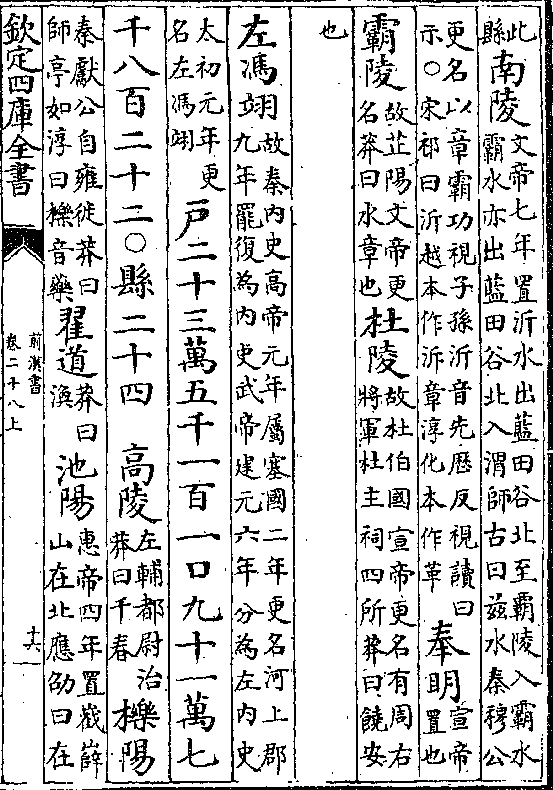 此縣南陵文帝七年置沂水出藍田谷北至霸陵入霸水
霸水亦出藍田谷北入渭師古曰兹水秦穆公
更名以章霸功視子孫沂音先歷反視讀曰
示○宋祁曰沂越本作泝章淳化本作革奉明宣帝置也
霸陵故芷陽文帝更名莽曰水章也杜陵故杜伯國宣帝更名有周右
將軍杜主祠四所莽曰饒安
也
左馮翊故秦内史高帝元年屬塞國二年更名河上郡
九年罷復為内史武帝建元六年分為左内史
太初元年更名左馮翊戸二十三萬五千一百一口九十一萬七
千八百二十二○縣二十四 高陵左輔都尉治莽曰千春櫟陽
秦獻公自雍徙莽曰師亭如淳曰櫟音藥翟道莽曰渙池陽惠帝四年置嶻嶭
山在北應劭曰在
欽定四庫全書
前漢書
卷二十八上
十六